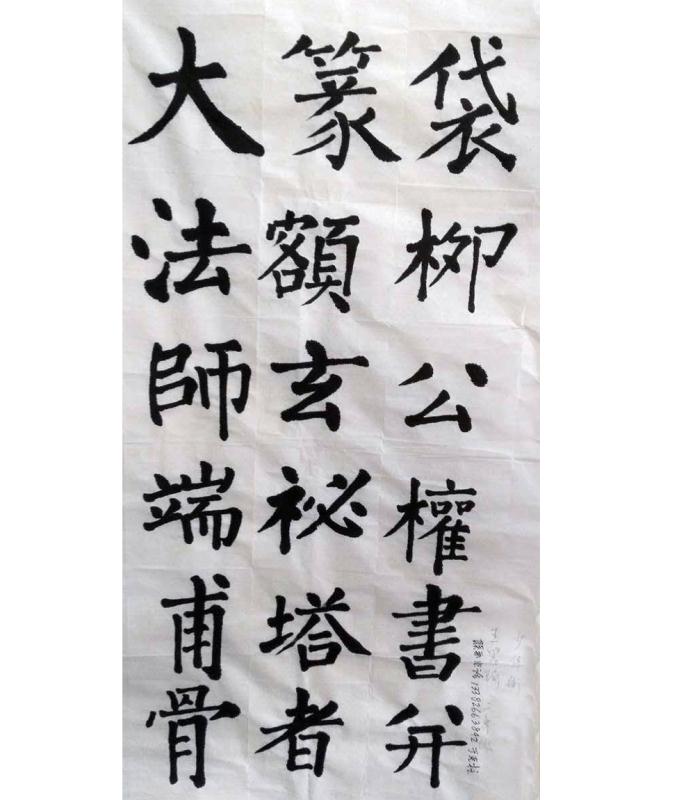 袋柳公權書并
篆額玄祕塔者
大法師端甫骨